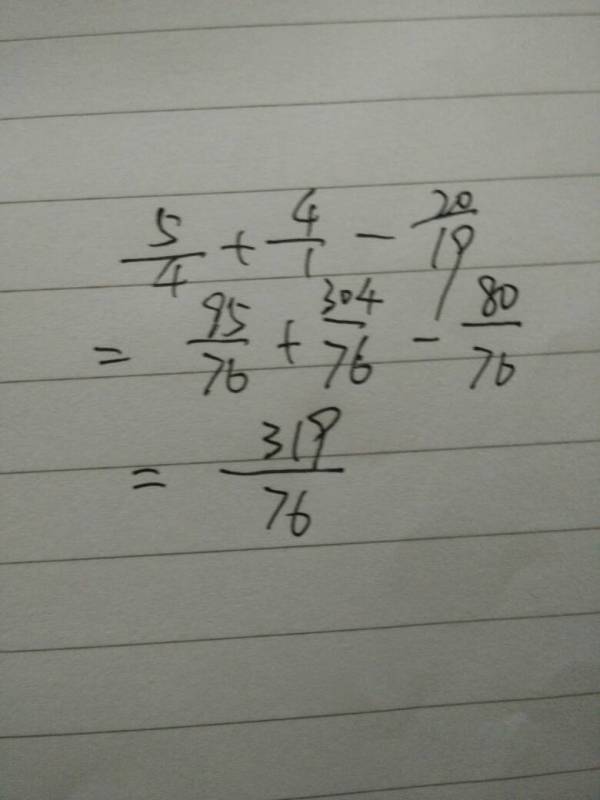 5/4 + 4/1 - 20/19
= 95/76 + 304/76 - 80/76
= 319/76